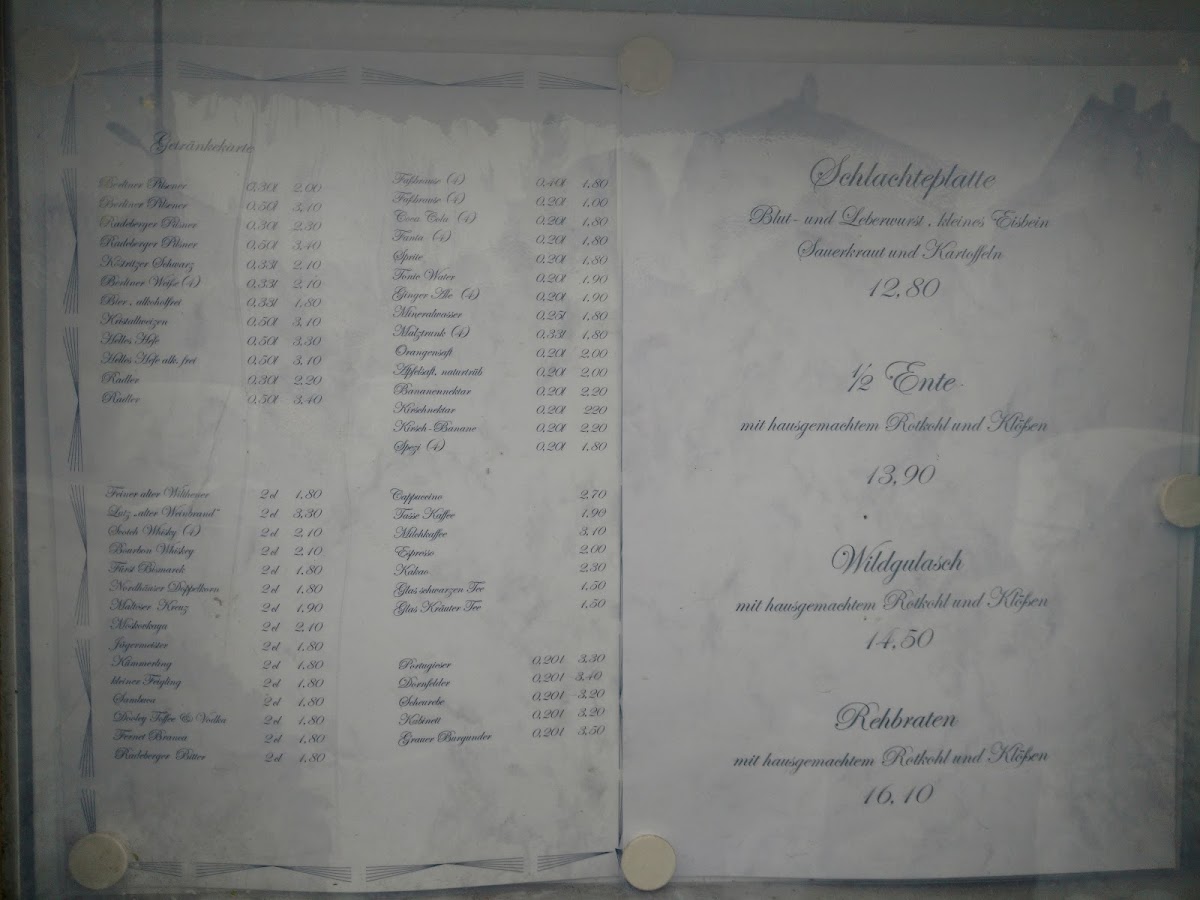 Getränkekarte
Berliner Pilsener 0,30l 2.00
Berliner Pilsener 0,50l 3,10
Radeberger Pilsner 0,30l 2,30
Radeberger Pilsner 0,50l 3,40
Köstritzer Schwarz 0,33l 2,10
Berliner Weiße (4) 0,33l 2,10
Bier, alkoholfrei 0,33l 1,80
Kristallweizen 0,50l 3,10
Helles Hefe 0,50l 3,30
Helles Hefe alk. frei 0,50l 3,10
Radler 0,30l 2,20
Radler 0,50l 3,40
Feiner alter Wilthener 2cl 1,80
Lutz „alter Weinbrand“ 2cl 3,30
Scotch Whisky (4) 2cl 2,10
Bourbon Whiskey 2cl 2,10
Fürst Bismarck 2cl 1,80
Nordhäuser Doppelkorn 2cl 1,80
Malteser Kreuz 2cl 1,90
Moskovskaya 2cl 2,10
Jägermeister 2cl 1,80
Kümmerling 2cl 1,80
kleiner Feigling 2cl 1,80
Sambuca 2cl 1,80
Dooley Toffee & Vodka 2cl 1,80
Fernet Branca 2cl 1,80
Radeberger Bitter 2cl 1,80
Faßbrause (4) 0,40l 1,80
Faßbrause (4) 0,20l 1,00
Coca Cola (4) 0,20l 1,80
Fanta (4) 0,20l 1,80
Sprite 0,20l 1,80
Tonic Water 0,20l 1,90
Ginger Ale (4) 0,20l 1,90
Mineralwasser 0,25l 1,80
Malztrunk (4) 0,33l 1,80
Orangensaft 0,20l 2,00
Apfelsaft, naturtrüb 0,20l 2,00
Bananennektar 0,20l 2,20
Kirschnektar 0,20l 220
Kirsch-Banane 0,20l 2,20
Spezi (4) 0,20l 1,80
Cappuccino 2,70
Tasse Kaffee 1,90
Milchkaffee 3,10
Espresso 2,00
Kakao 2,30
Glas schwarzen Tee 1,50
Glas Kräuter Tee 1,50
Portugieser 0,20l 3,30
Dornfelder 0,20l 3,40
Scheurebe 0,20l 3,20
Kabinett 0,20l 3,20
Grauer Burgunder 0,20l 3,50
Schlachteplatte
Blut- und Leberwurst , kleines Eisbein
Sauerkraut und Kartoffeln
12,80
½ Ente
mit hausgemachtem Rotkohl und Klößen
13,90
Wildgulasch
mit hausgemachtem Rotkohl und Klößen
14,50
Rehbraten
mit hausgemachtem Rotkohl und Klößen
16,10